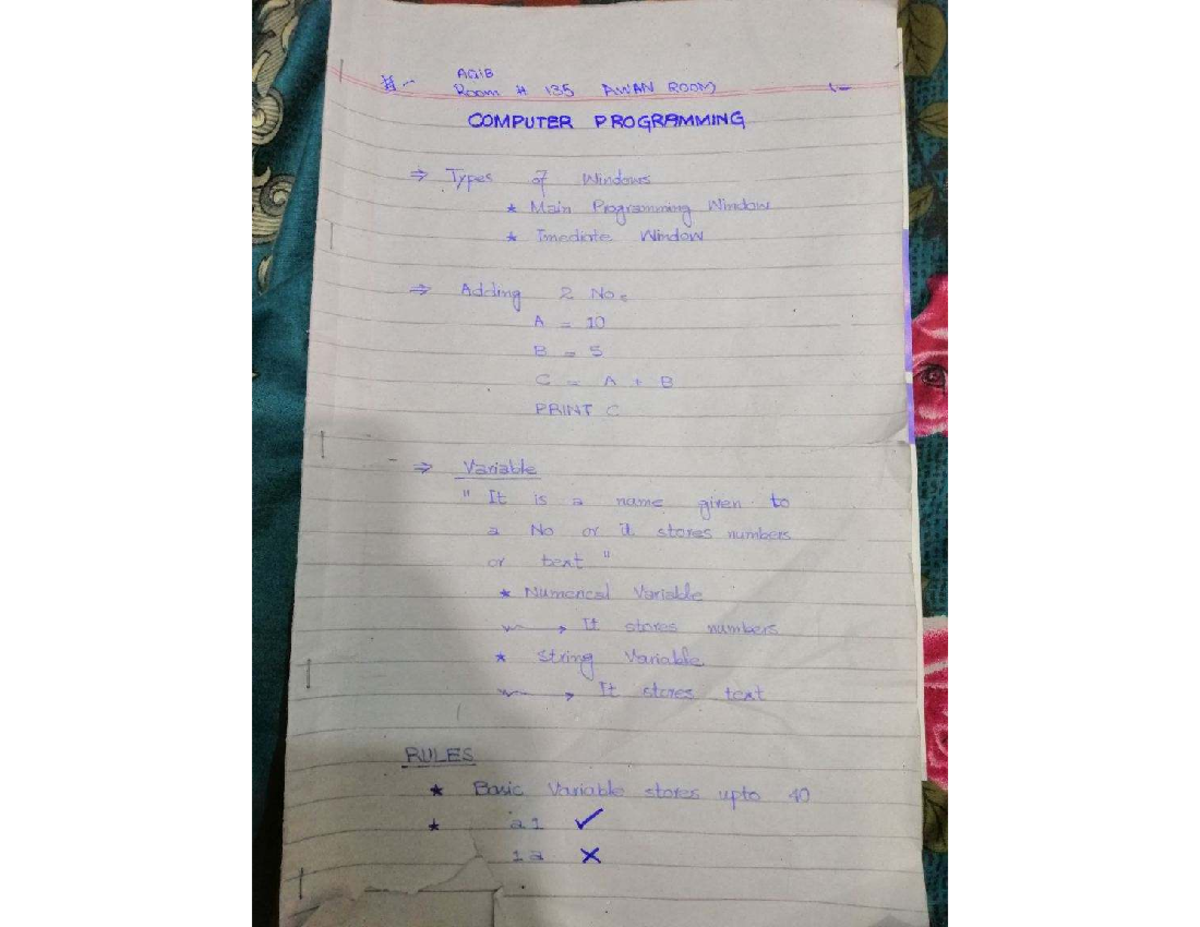 AQIB
#- Room # 135 AWAN ROOM) 1-
COMPUTER PROGRAMMING
⇒ Types of Windows
* Main Programming Window
* Imediate Window
⇒ Adding 2 Nos
A = 10
B = 5
C = A + B
PRINT C
⇒ Variable
" It is a name given to
a No or it stores numbers
or text "
* Numerical Variable
→ It stores numbers
* String Variable
→ It stores text
RULES
* Basic Variable stores upto 40
* a1 ✓
1a ✗